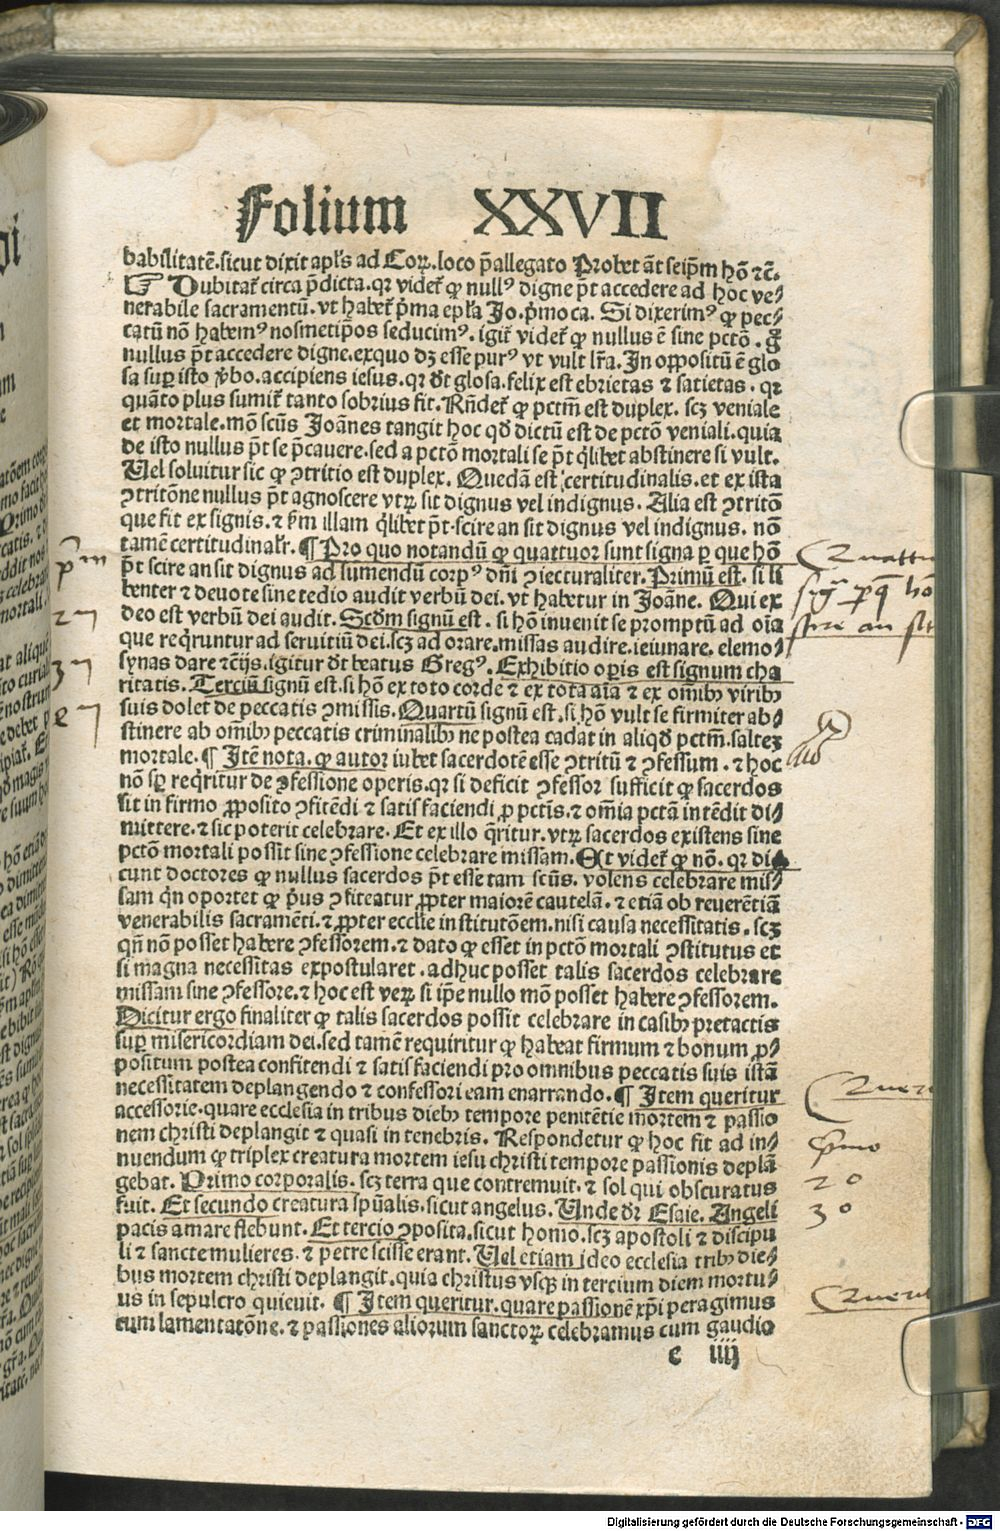 Folium XXVII
babilitatē.sicut dixit apl's ad Coꝝ.loco p̄allegato Probet āt seip̄m hō ⁊c̄.
☞ Dubitat̄ circa p̄dicta.qꝛ videt̄ ꝙ nullꝰ digne p̄t accedere ad hoc ve⸗
nerabile sacramentū. vt habet̄ p̄ma ep̄la Jo.p̄mo ca. Si dixerimꝰ ꝙ pec⸗
catū nō habemꝰ nosmetip̄os seducimꝰ. igit̄ videt̄ ꝙ nullus ē sine pctō. g̊
nullus p̄t accedere digne.exquo dꝫ esse purꝰ vt vult lr̄a. In oppositū ē glo
sa suꝑ isto v̄bo.accipiens iesus.qꝛ d̄t glosa.felix est ebrietas ⁊ satietas. qꝛ
quāto plus sumit̄ tanto sobrius fit. Rn̄det̄ ꝙ pctm̄ est duplex. scꝫ veniale
et mortale.mō scūs Joānes tangit hoc qd̄ dictū est de pctō veniali.quia
de isto nullus p̄t se p̄cauere.sed a pctō mortali se p̄t q̄libet abstinere si vult.
Uel soluitur sic ꝙ ↄtritio est duplex. Quedā est certitudinalis.et ex ista
ↄtritōne nullus p̄t agnoscere vtꝝ sit dignus vel indignus. Alia est ↄtritō
que fit ex signis.⁊ ẜm illam q̄libet p̄t scire an sit dignus vel indignus. nō
tamē certitudinalr̄. ¶ Pro quo notandū ꝙ quattuor sunt signa ꝑ que hō
p̄t scire an sit dignus ad sumendū corpꝰ dn̄i ↄiecturaliter. Primū est. si li
benter ⁊ deuote sine tedio audit verbū dei. vt habetur in Joāne. Qui ex
deo est verbū dei audit. Scd̄m signū est. si hō inuenit se promptū ad oīa
que req̄runtur ad seruitiū dei.scꝫ ad orare.missas audire.ieiunare. elemo⸗
synas dare ⁊c̄ijs.igitur d̄t beatus Gregꝰ. Exhibitio oꝑis est signum cha
ritatis. Terciū signū est.si hō ex toto corde ⁊ ex tota aīa ⁊ ex om̄ibꝰ viribꝰ
suis dolet de peccatis ↄmissis. Quartū signū est.si hō vult se firmiter ab⸗
stinere ab om̄ibꝰ peccatis criminalibꝰ ne postea cadat in aliqd̄ pctm̄.saltez
mortale. ¶ Itē nota. ꝙ autor iubet sacerdotē esse ↄtritū ⁊ ↄfessum. ⁊ hoc
nō sꝑ req̄ritur de ↄfessione operis.qꝛ si deficit ↄfessor sufficit ꝙ sacerdos
sit in firmo ꝓposito ↄfitēdi ⁊ satisfaciendi ꝓ pctīs.⁊ om̄ia pctā intēdit di⸗
mittere.⁊ sic poterit celebrare. Et ex illo q̄ritur. vtꝝ sacerdos existens sine
pctō mortali possit sine ↄfessione celebrare missam. Et videt̄ ꝙ nō. qꝛ di⸗
cunt doctores ꝙ nullus sacerdos p̄t esse tam scūs. volens celebrare mis⸗
sam qn̄ oportet ꝙ p̄us ↄfiteatur ꝓpter maiorē cautelā. ⁊ etiā ob reuerētiā
venerabilis sacramēti. ⁊ ꝓpter ecclīe institutōem.nisi causa necessitatis.scꝫ
qn̄ nō posset habere ↄfessorem.⁊ dato ꝙ esset in pctō mortali ↄstitutus et
si magna necessitas expostularet.adhuc posset talis sacerdos celebrare
missam sine ↄfessore.⁊ hoc est veꝝ si ip̄e nullo mō posset habere ↄfessorem.
Dicitur ergo finaliter ꝙ talis sacerdos possit celebrare in casibꝰ pretactis
suꝑ misericordiam dei.sed tamē requiritur ꝙ habeat firmum ⁊ bonum ꝓ⸗
positum postea confitendi ⁊ satisfaciendi pro omnibus peccatis suis istā
necessitatem deplangendo ⁊ confessori eam enarrando. ¶ Item queritur
accessorie.quare ecclesia in tribus diebꝰ tempore penitētie mortem ⁊ passio
nem christi deplangit ⁊ quasi in tenebris. Respondetur ꝙ hoc fit ad in⸗
nuendum ꝙ triplex creatura mortem iesu christi tempore passionis deplā
gebat. Primo corporalis. scꝫ terra que contremuit. ⁊ sol qui obscuratus
fuit. Et secundo creatura sp̄ualis.sicut angelus. Unde d̄r Esaie. Angeli
pacis amare flebunt. Et tercio ↄposita.sicut homo.scꝫ apostoli ⁊ discipu
li ⁊ sancte mulieres. ⁊ petre scisse erant. Uel etiam ideo ecclesia tribꝰ die⸗
bus mortem christi deplangit.quia christus vsqꝫ in tercium diem mortu⸗
us in sepulcro quieuit. ¶ Item queritur.quare passionē xp̄i peragimus
cum lamentatōne.⁊ passiones aliorum sanctoꝝ celebramus cum gaudio
e iiij
p̄m
2ᵐ
3ᵐ
Quattu
hō
scire an sit
p̄mo
2o
3o
Digitalisierung gefördert durch die Deutsche Forschungsgemeinschaft - DFG